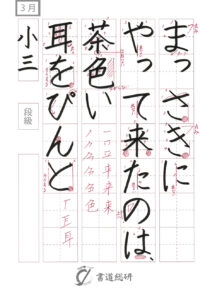 3月
小三
段級
まっさきに
やって来たのは、
茶色い
耳をぴんと
一口立平来来
ノクタ名色色
一丅耳耳
書道総研